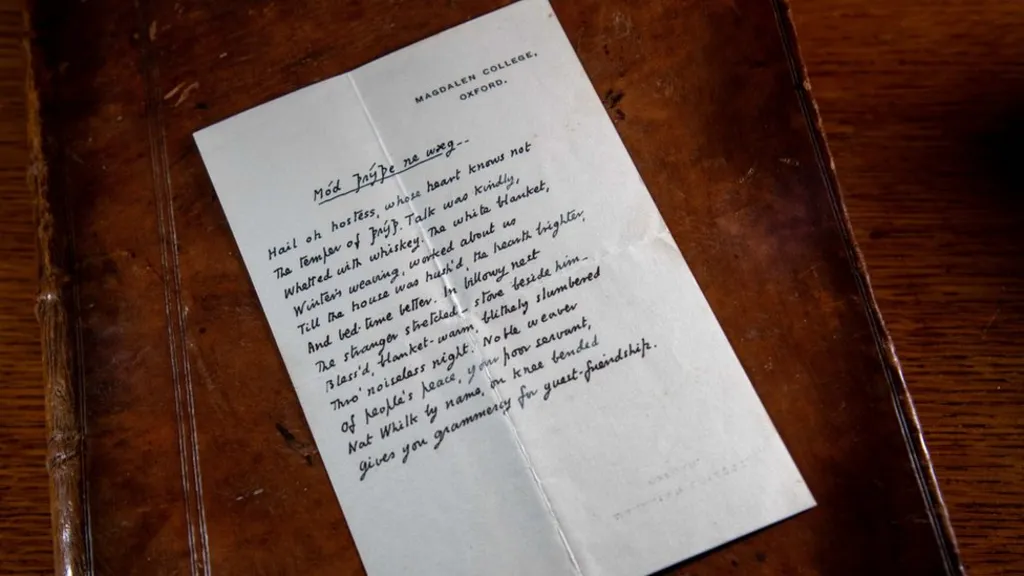 MAGDALEN COLLEGE,
OXFORD.
Mód Þrýþe ne wæg--
Hail oh hostess, whose heart knows not
The temper of Þrýþ. Talk was kindly,
Whetted with whiskey. The white blanket,
Winter's weaving, worked about us
Till the house was hush'd, the hearth brighter,
And bed-time better. In billowy nest
The stranger stretched, stove beside him_
Bless'd, blanket-warm, blithely slumbered
Thro' noiseless night. Noble weaver
Of people's peace, your poor servant,
Nat Whilk by name, on knee bended
gives you grammercy for guest-friendship.